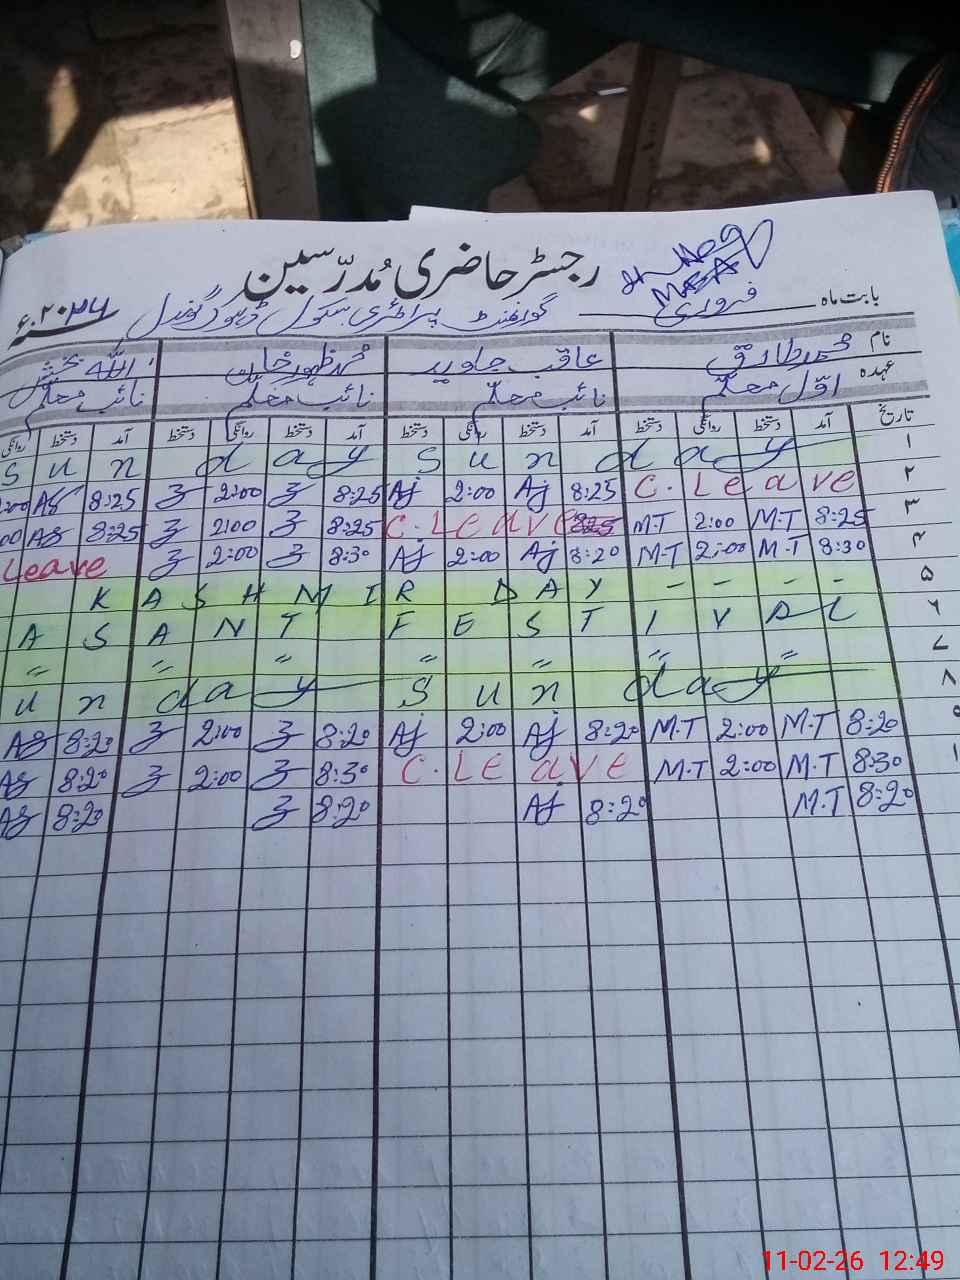 رجسٹر حاضری مُدرّسین
MEA
بابت ماہ فروری گورنمنٹ پرائمری سکول ۲۰۲۶ء
نام محمد طارق عاقب جاوید محمد ظہور خان اللہ بخش
عہدہ اوّل معلّم نائب معلّم نائب معلّم نائب معلّم
تاریخ آمد دستخط روانگی دستخط آمد دستخط روانگی دستخط آمد دستخط روانگی دستخط آمد دستخط روانگی
۱ Sun day Sun day
۲ :00 AB 8:25 2:00 8:25 Aj 2:00 Aj 8:25 C. Leave
۳ 00 AB 8:25 2:00 8:25 C. Leave 8:25 M.T 2:00 M.T 8:25
۴ Leave 2:00 8:30 Aj 2:00 Aj 8:20 M.T 2:00 M.T 8:30
۵ KASHMIR DAY - - - -
۶ ASANT FESTIVAL
۷ " " " " " " "
۸ un day Sun day
۹ AB 8:20 2:00 8:20 Aj 2:00 Aj 8:20 M.T 2:00 M.T 8:20
۱ AB 8:20 2:00 8:30 C. Leave M.T 2:00 M.T 8:30
AB 8:20 8:20 Aj 8:20 M.T 8:20
11-02-26 12:49